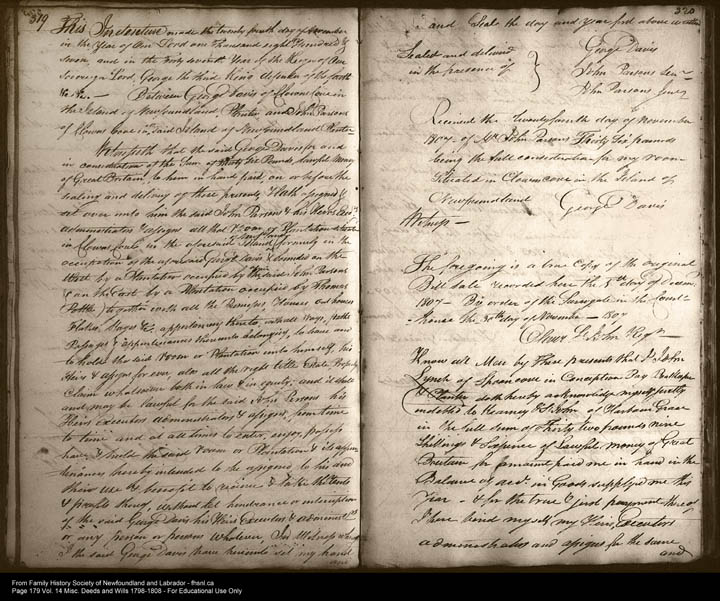 319
This Indenture made the twenty fourth day of November
in the Year of Our Lord one Thousand eight Hundred &
seven, and in the Forty seventh Year of the Reign of Our
Sovereign Lord, George the third King defender of the faith
&c &c. — Between George Davis of Clowns Cove in
the Island of Newfoundland Planter and John Parsons
of Clowns Cove in said Island of Newfoundland Planter
Witnesseth that the said George Davis for and
in consideration of the Sum of Thirty Six Pounds lawful money
of Great Britain, to him in hand paid, on or before the
sealing and delivery of these presents, Hath assigned &
set over unto him the said John Parsons & his Heirs
administrators & assigns all that Room or Plantation situate
in Clowns Cove in the aforesaid Island formerly in the
occupation of the aforesaid George Davis & bounded on the
West by a Plantation occupied by the said John Parsons
& on the East by a Plantation occupied by Thomas
together with all the Premises Houses Out houses
Flakes, Stages &c, appertaining thereto, with all Ways, paths
Passages & appurtenances thereunto belonging, to have and
to hold the said Room or Plantation unto himself, his
Heirs & assigns for ever, also all the right title Estate Property
Claim whatsoever both in law & in equity, and it shall
and may be lawful for the said John Parsons his
Heirs Executors administrators & assigns, from time
to time and at all times to enter, enjoy, possess
have & hold the said Room or Plantation & its appur
tenances thereby intended to be assigned to his and
their use & benefit to receive & take the Rents
& profits thereof, without let hindrance or interruption
of the said George Davis his Heirs Executors & administrators
or any person or persons whatever, In Witness whereof
I the said George Davis have hereunto set my hand
and
320
and Seal the day and year first above written
Sealed and delivered
in the presence of
George Davis
John Parsons Senr
John Parsons Junr
Received the twentyfourth day of November
1807 of Mr John Parsons Thirty Six pounds
being the full consideration for my room
situated in Clowns cove in the Island of
Newfoundland George Davis
Witness —
The foregoing is a true Copy of the original
Bill Sale recorded here the 5th day of Decemr
1807 — By order of the Surrogate in the Court
house the 30th day of November — 1807
Know all Men by these presents that I John
Lynch of Spoon cove in Conception Bay
& Planter doth hereby acknowledge myself justly
indebted to Kearney & St John of Harbour Grace
in the full Sum of Thirty two pounds nine
Shillings & Sixpence of Lawful money of Great
Britain for amount paid me in hand in the
Balance of acct. in Goods supplyed me this
Year — & for the true & just payment thereof
I here bind myself my Heirs, Executors
administrators and assigns for the same
and
From Family History Society of Newfoundland and Labrador - fhsnl.ca
Page 179 Vol. 14 Misc. Deeds and Wills 1798-1808 - For Educational Use Only